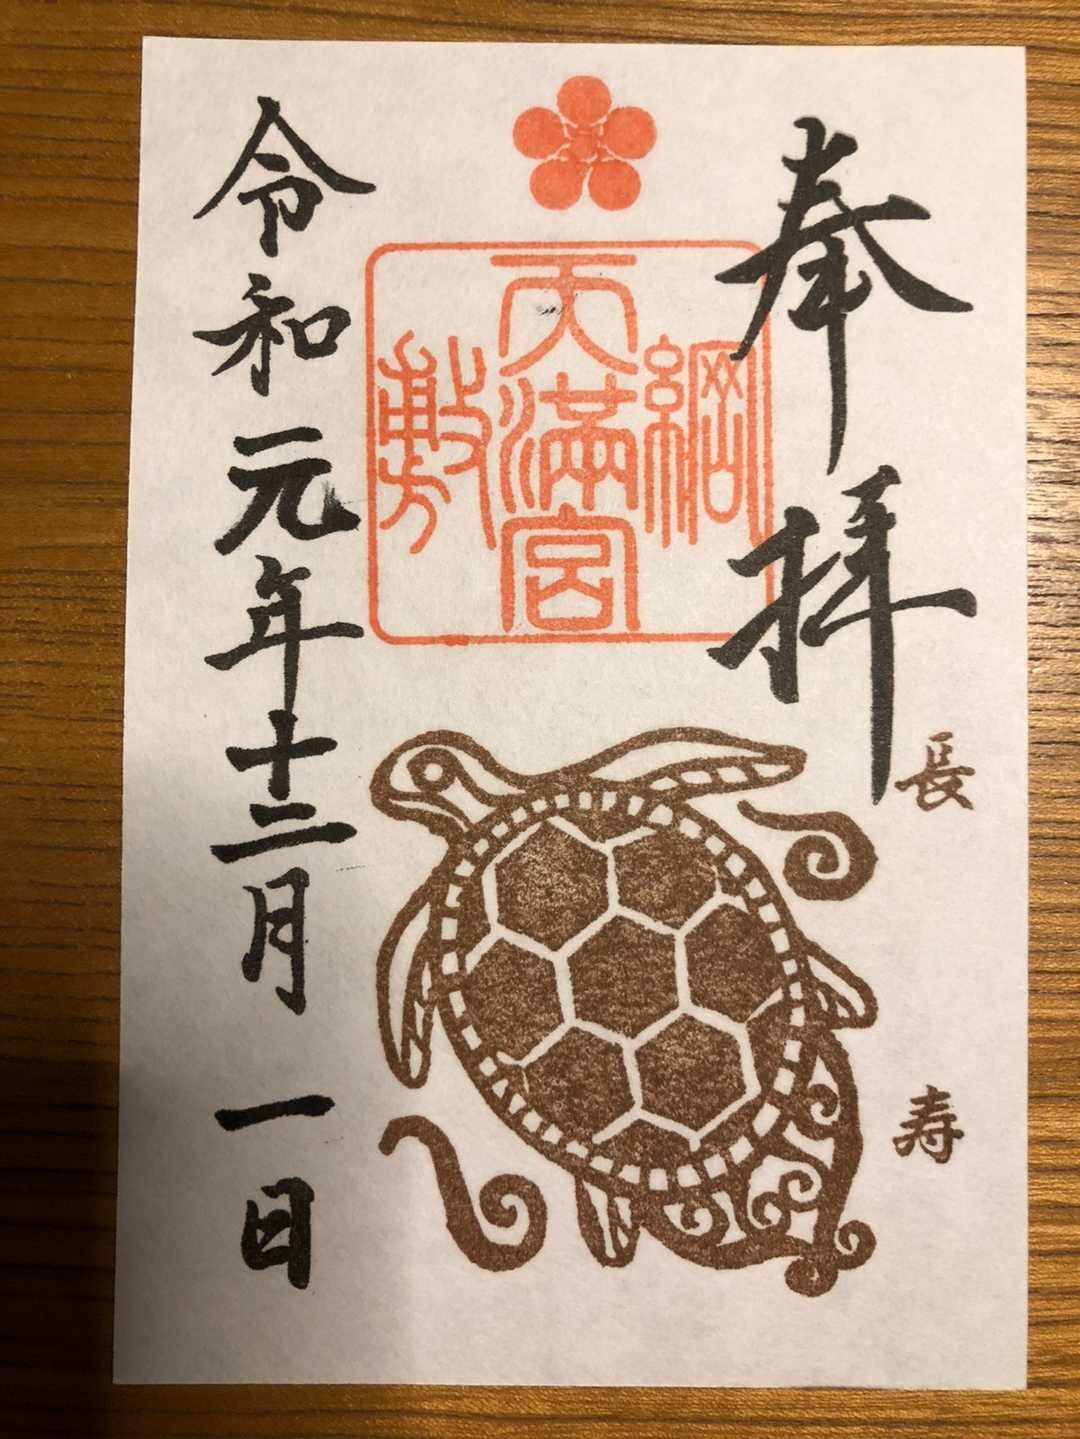 奉拝
長寿
綱敷
天満宮
令和元年十二月一日